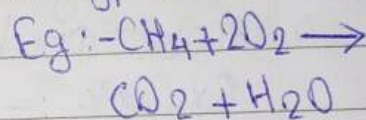 Eg:-CH4+2O2⟶
CO2+H2O